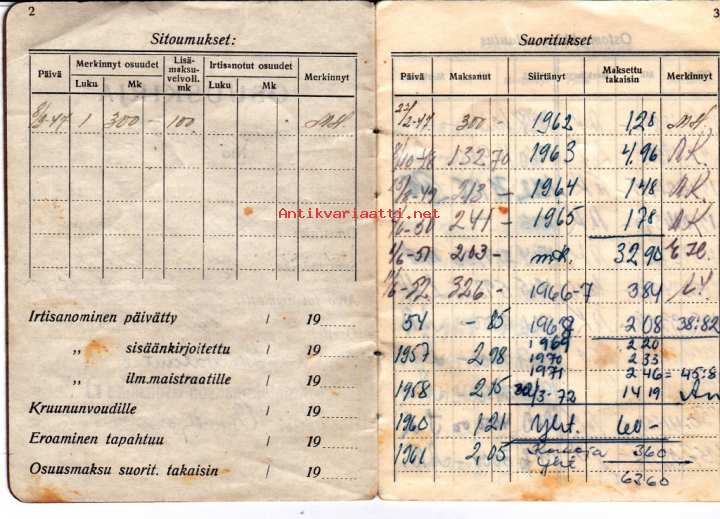 2
Sitoumukset:
Päivä
Merkinnyt osuudet
Luku
Mk
Lisä-
maksu-
veivoll.
mk
Irtisanotut osuudet
Luku
Mk
Merkinnyt
-47 1 300 - 100
Irtisanominen päivätty / 19
„ sisäänkirjoitettu / 19
„ ilm.maistraatille / 19
Kruununvoudille / 19
Eroaminen tapahtuu / 19
Osuusmaksu suorit. takaisin / 19
3
Suoritukset
Päivä
Maksanut
Siirtänyt
Maksettu
takaisin
Merkinnyt
300 - 1962 128
132 70 1963 4,96 A.K.
213 - 1964 148 A.K.
241 - 1965 178 A.K.
203 - mk. 32 90
326 - 1966-7 384
54 - 85 1968 2 08 38:82
1969 2 20
1957 2 98 1970 2 33
1971 2 46 = 45:8
1958 2 15 /3-72 14 19
1960 121 Yht. 60 -
1961 2,05 Korkoja 360
Yht 6360
Antikvariaatti.net